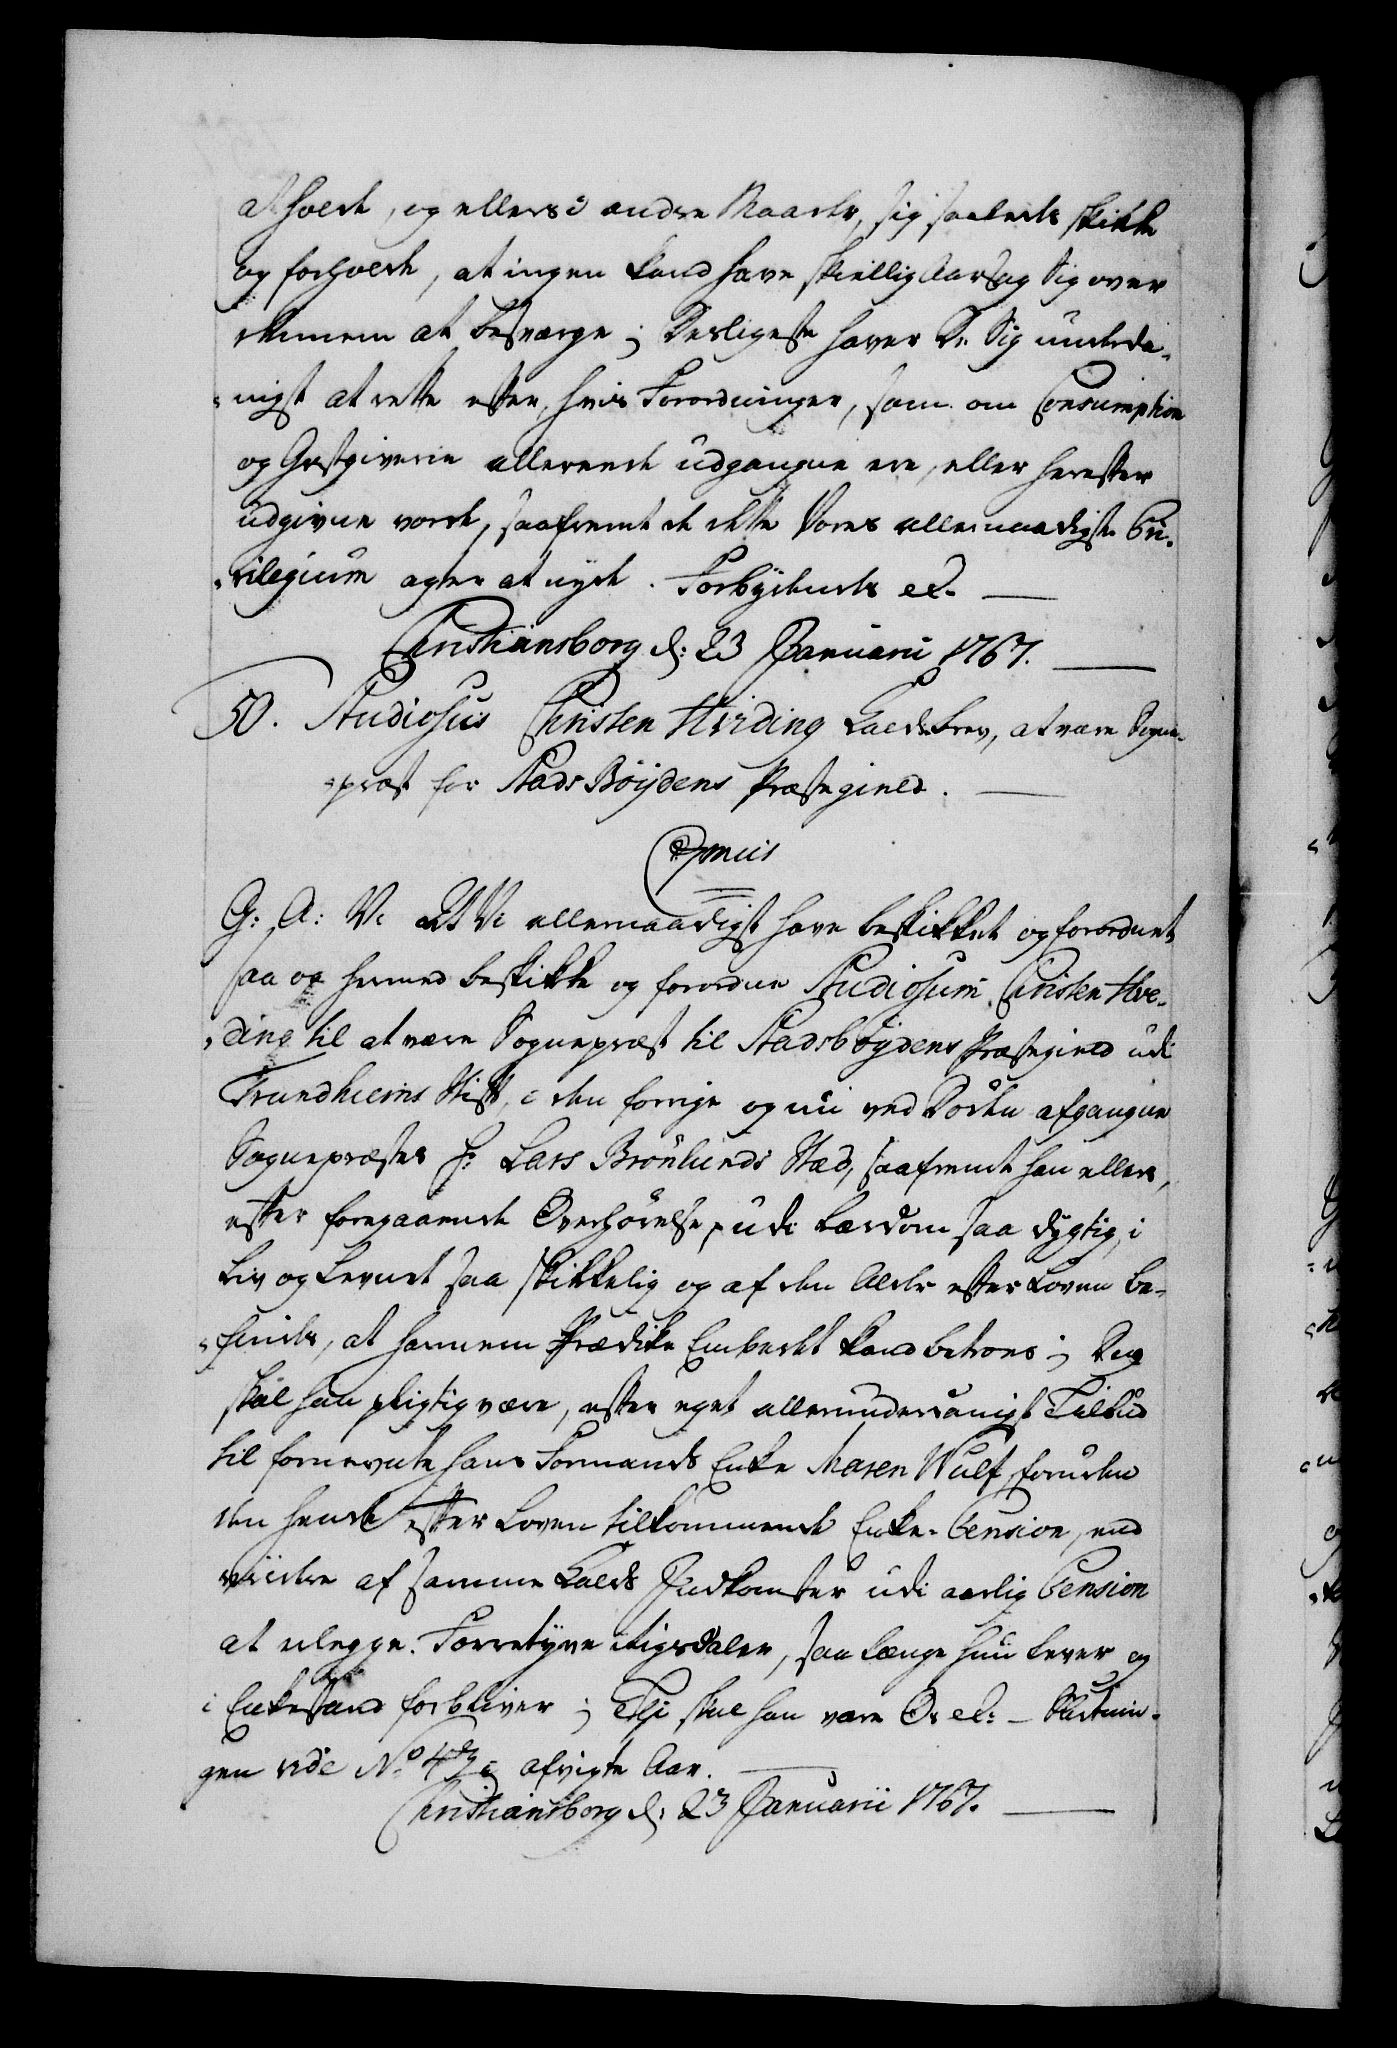 at holde, og ellers i andre Maader, sig saaleds skikke
og forholde, at ingen kand have skiellig Aarsag Sig over
dennem at besværge; Desligeste haver De Sig underda-
nigst at rette efter, hvis Forordninger, som om Consumption
og Gæstgiverie allerende udgangne ere, eller herefter
udgivne vorde, saafremt de dette Vores allernaadigste Pri-
vilegium agter at nyde. Forbydends etc.
Christiansborg d: 23 Januarii 1767.
50. Studiosus Christen Hveding Kaldsbrev, at være Sogne-
præst for Stads Böijdens Præstegield.
Ejsmus
G: A: V: At Vi allernaadigst have beskikket og forordnet
saa og hermed beskikke og forordne Studiosum Christen Hve-
ding til at være Sognepræst til Stadsböijdens Præstegield udi
Trundhiems Stift, i den forrige og nu ved Döden afgangne
Sognepræstes Hr Lars Brönlunds Sted, saafremt han ellers,
efter foregaaende Overhörelse, udi Lærdom saa dygtig, i
Liv og Levnet saa skikkelig og af den Alder efter Loven be-
findes, at hannem Prædike Embedet kand betroes; Dog
skal han pligtig være, efter eget allerunderdanigst Tilbud
til fornevnte hans Formands Enke Maren Wulf, foruden
den hende efter Loven tilkommende Enke-Pension, end
viidere af samme Kalds Indkomster udi aarlig Pension
at erlegge Forretyve Rigsdaler, saa længe hun lever og
i Enkestand forbliver; Thi skal han være Os etc: - Slutnin-
gen vide No 47 i afvigte Aar.
Christiansborg d: 23 Januarii 1767.